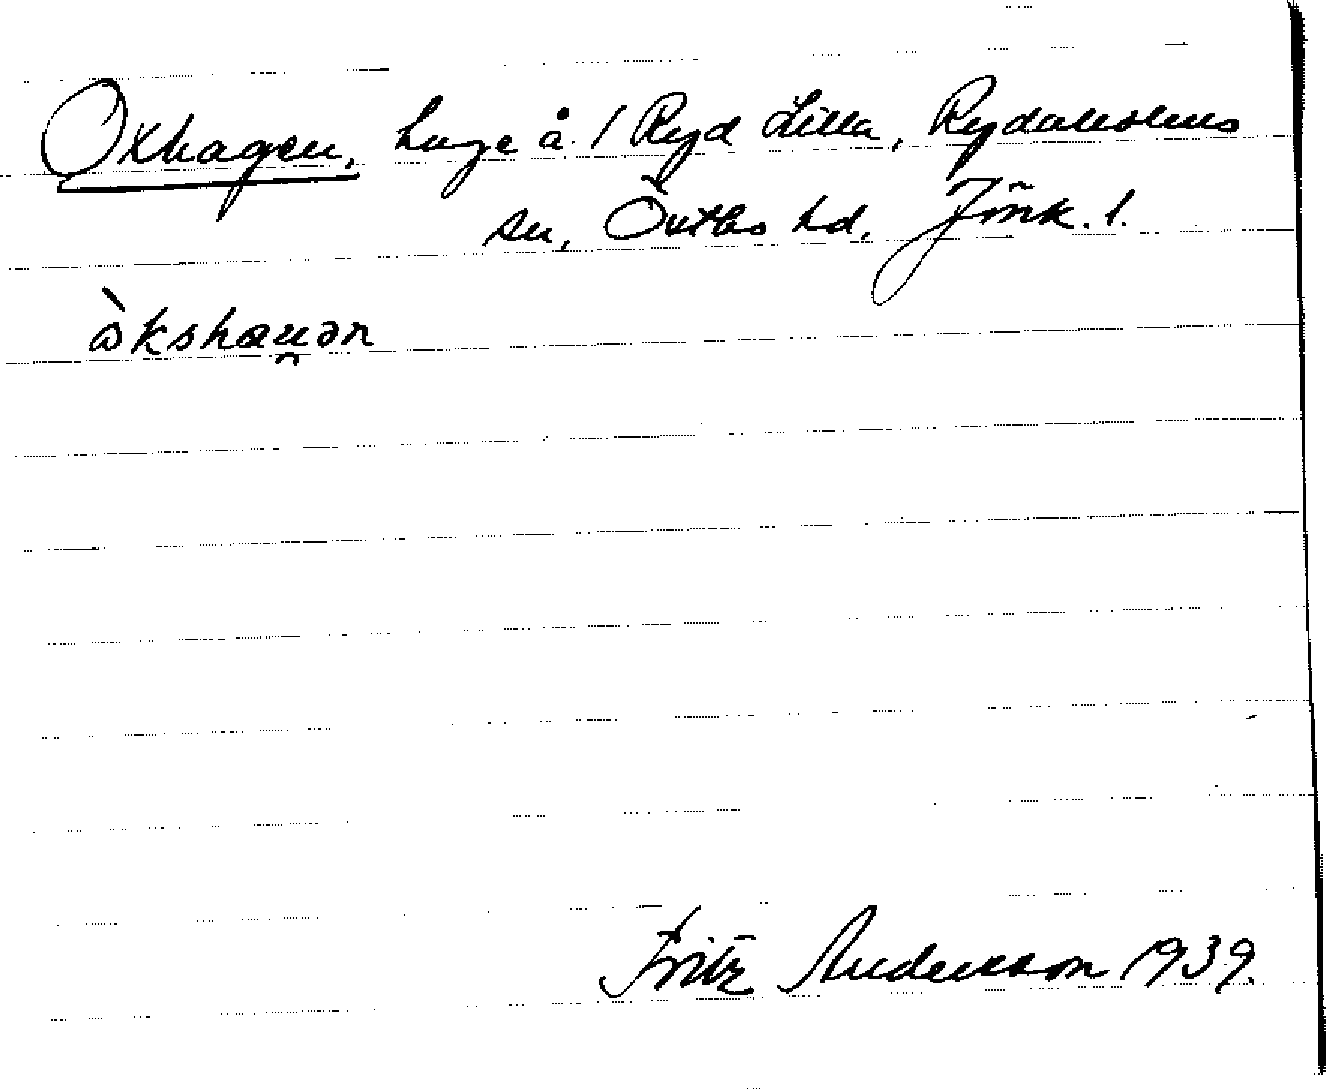 Oxhagen, hage å 1 Ryd Lilla, Rydaholms
sn, Östbo hd. Jönk. l.
åkshau̯ən
Fritz Andersson 1939.